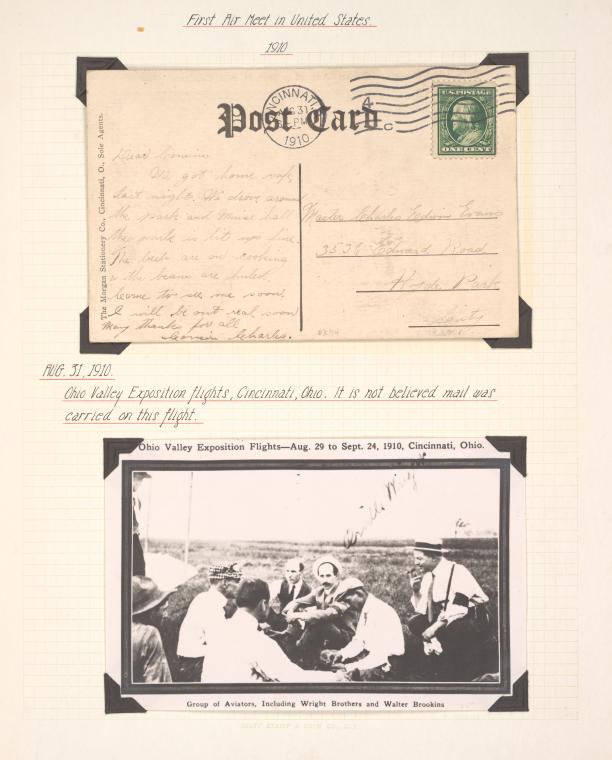 First Air Meet in United States.
1910
Post Card
CINCINNATI
AUG 31
PM
1910
4
C
U.S. POSTAGE
ONE CENT
The Morgan Stationery Co., Cincinnati, O., Sole Agents.
Dear Cousin
We got home safe
last night. We drove around
the park and Music hall
the park is lit up fine.
The beets are on cooking
& the beans are
come to see me soon.
I will be out real soon
Many thanks for all
Cousin Charles.
Master Charles Edwin Evans
3536 Edward Road
Hyde Park
AUG. 31, 1910.
Ohio Valley Exposition flights, Cincinnati, Ohio. It is not believed mail was
carried on this flight.
Ohio Valley Exposition Flights—Aug. 29 to Sept. 24, 1910, Cincinnati, Ohio.
Orville Wright
Group of Aviators, Including Wright Brothers and Walter Brookins